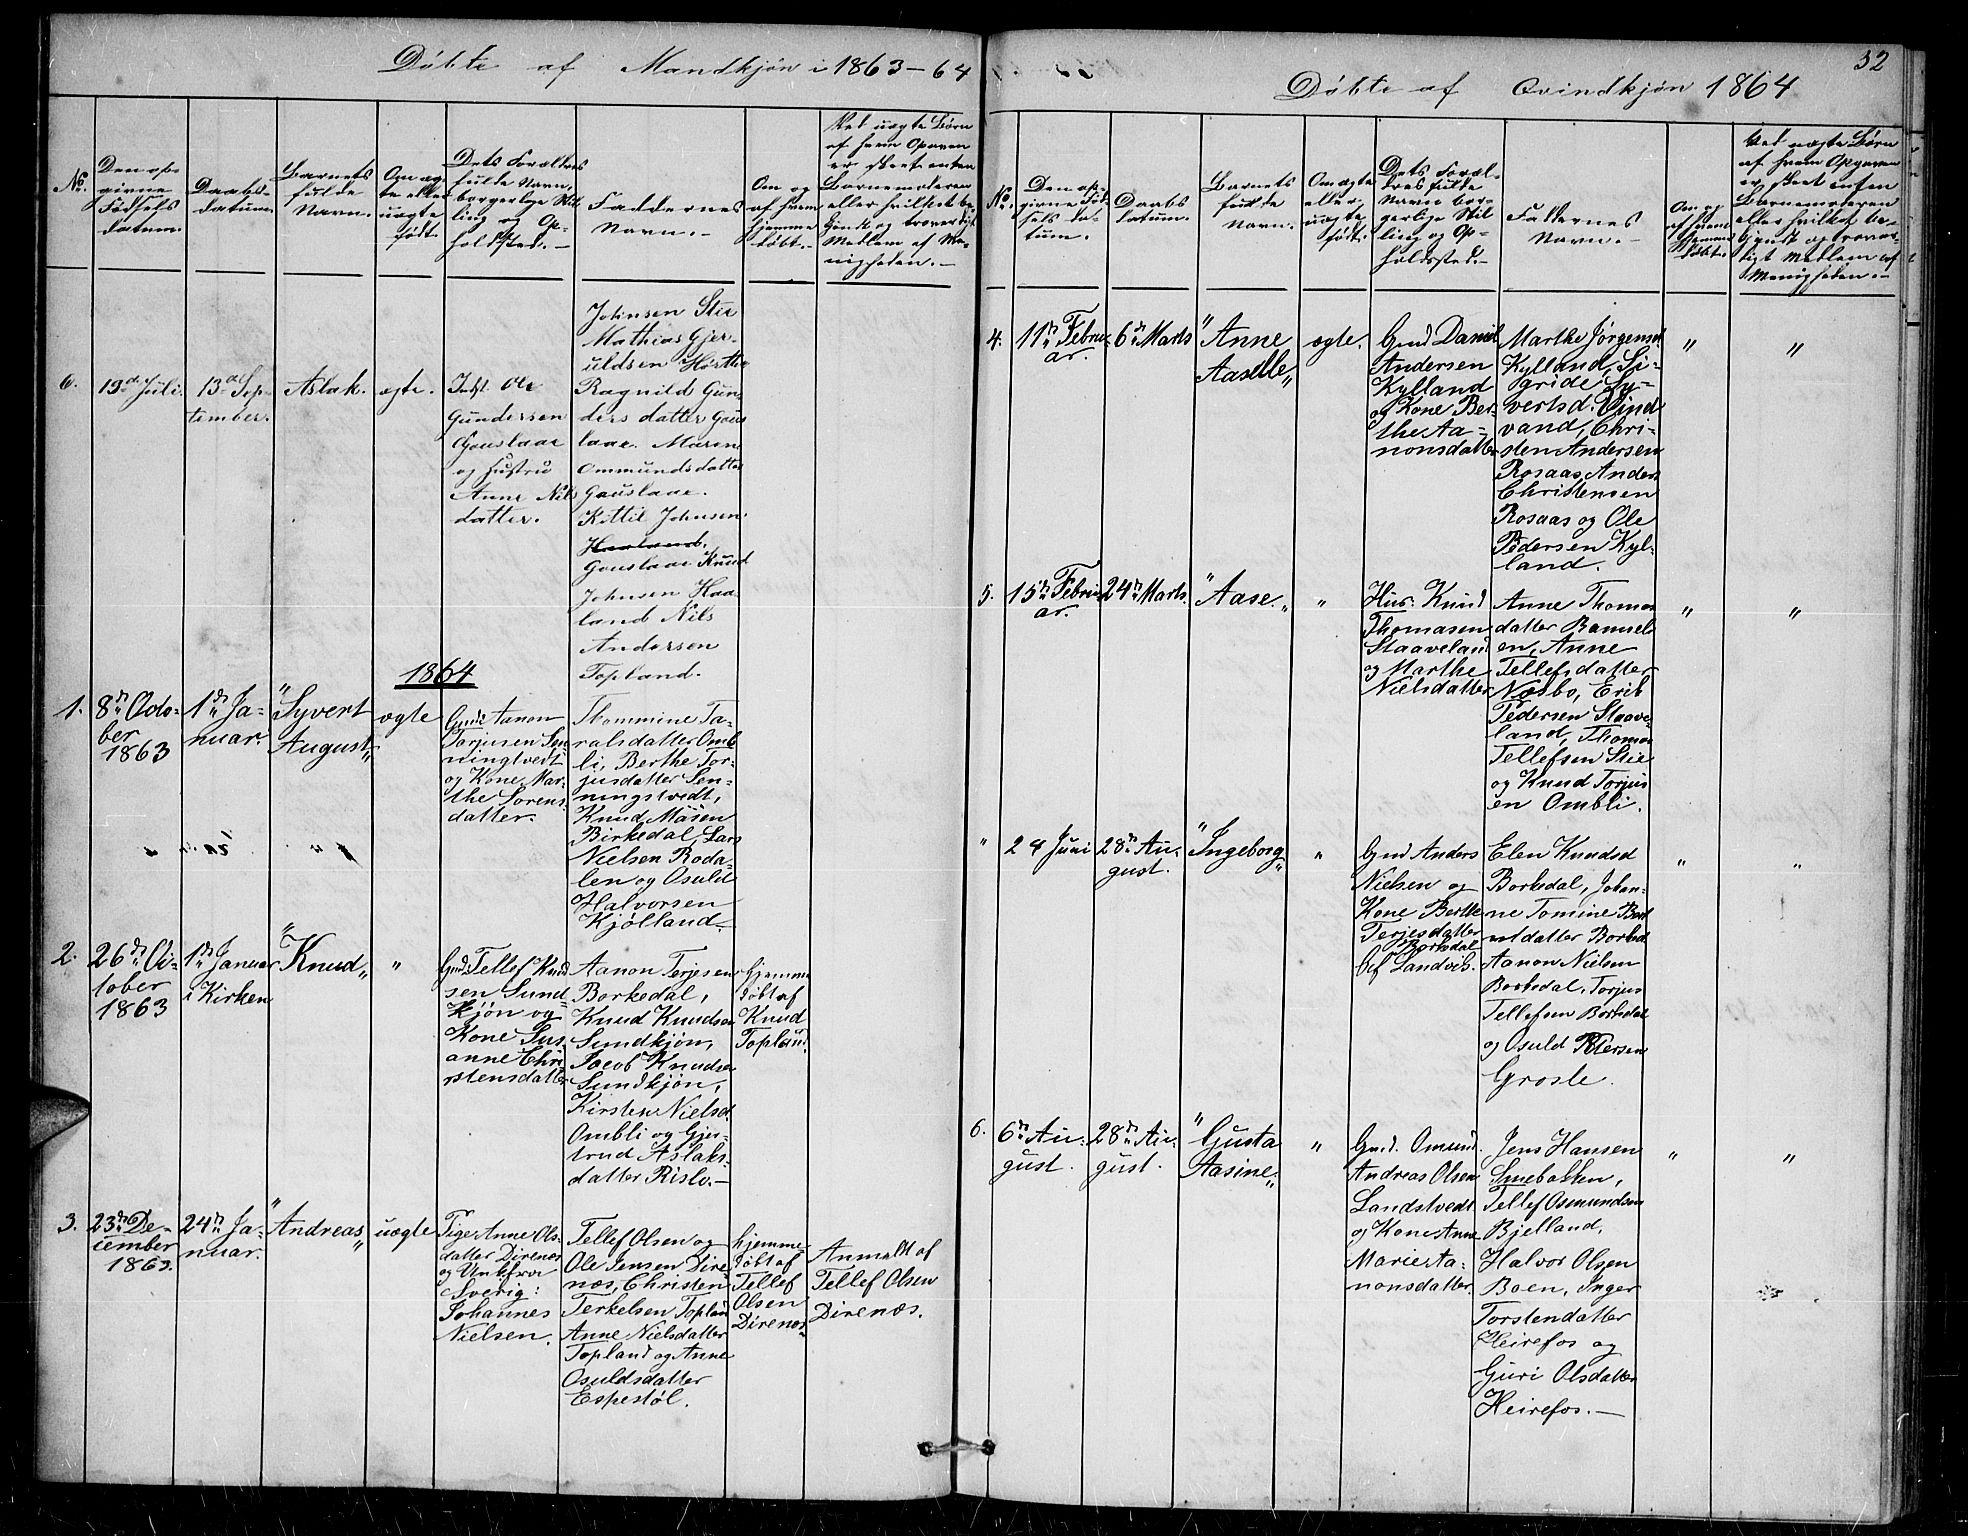 Döbte af Mandkjön i 1863-64
No.
Den op-
givne
Födsels
datum.
Daabs-
datum.
Barnets
fulde
Navn.
Om æg-
te eller
uægte
födt.
Dets Forældres
fulde Navn,
borgerlige Stil-
ling og Op-
holdssted.-
Faddernes
Navn.-
Om og
af hvem
hjemme
döbt.-
Ved uægte Börn
af hvem Opgaven
er skeet enten
Barnemoderen
eller hvilket be-
kjendt og troværdigt
Medlem af Me-
nigheden.-
Johnsen Stie
Mathias Gjer-
uldsen
6.
19de Juli.
13de Sep-
tember.
Aslak.
ægte.
Indst. Ole
Gundersen
Gauslaae
og Hustru
Anne Nils
datter.
Ragnild Gun-
ders datter Gaus
laae. Maren
Ommundsdatter
Gauslaae.
Kittil Johnsen
Haaland.
Gauslaae Knud
Johnsen Haa
land Nils
Andersen
Topland.
1864
1.
8de Octo-
ber
1863
1de Ja-
nuar.
"Syvert
August"
ægte
Gmd: Aanon
Torjusen Sen-
ningtvedt
og Kone Mar-
the Sörens
datter.
Thommine Ta-
ralsdatter Omb
li, Berthe Tor-
jusdatter Sen-
ningstvedt,
Knud Måsen
Birkedal, Lars
Nielsen Roda-
len og Osuld
Halvorsen
Kjölland.
2.
26de Oc-
tober
1863
1de Januar
i Kirken
"Knud"
"
Gmd: Tellef Knud
sen Sund-
kjön og
Kone Sus-
anne Chri-
stensdatter
Aanon Terjesen
Borkedal,
Knud Knudsen
Sundkjön,
Jacob Knudsen
Sundkjön,
Kirsten Nielsd.
Ombli og Gjer-
trud Aslaks-
datter Rislo.-
hjemme
döbt af
Knud
Topland.
3.
23de De-
cember
1863.
24de Ja-
nuar.
"Andreas"
uægte
Pige Anne Ols-
datter Direnæs
og Unkfra
Sverig:
Johannes
Nielsen.
Tellef Olsen og
Ole Jensen Dire
næs, Christen
Terkelsen Toplan
Anne Nielsdatter
Topland og Anne
Osuldsdatter
Espestöl.
hjemme-
döbt af
Tellef
Olsen
Direnæs
Anmeldt af
Tellef Olsen
Direnæs.
32
Döbte af Qvindkjön 1864
No.
Den op-
givne Föd-
sels da-
tum.
Daabs
datum.
Barnets
fulde
Navn.
Om ægte
eller
uægte
födt.
Dets Foræl-
dres fulde
Navn bor-
gerlige Stil
ling og Op-
holdssted.-
Faddernes
Navn.-
Om og
af hvem
hjemme
döbt.
Ved uægte Börn
af hvem Opgaven
er skeet enten
Barnemoderen
eller hvilket be-
kjendt og trovær-
digt Medlem af
Menigheden.-
4.
11de Febru-
ar.
6de Marts
"Anne
Aaselle"
ægte.
Gmd Daniel
Andersen
Kylland
og Kone Ber-
the Aa-
nonsdatter
Marthe Jörgensd.
Kylland, Si-
gride Sy-
vertsd. Vind
vand, Chri-
sten Andersen
Rosaas, Anders
Christensen
Rosaas og Ole
Pedersen Kyl-
land.
"
"
5.
15de Febru-
ar.
24de Marts.
"Aase."
"
Hus: Knud
Thomasen
Staaveland
og Marthe
Nielsdatter
Anne Thomas
datter
en, Anne
Tellefsdatter
Næsbö, Erik
Pedersen Staave
land, Thomas
Tellefsen Stie
og Knud Torjus
en Ombli.
"
"
"
24 Juni
28de Au-
gust.
"Ingeborg"
"
Gmd Anders
Nielsen og
Kone Berthe
Terjesdatter
Borkedal
af Landvik.
Elen Knudsd
Borkedal, Johan-
ne Tomine Bent
ntdatter Borked
Aanon Nielsen
Borkedal, Torjus
Tellefsen Borkedal
og Osuld Petersen
Grosle.
"
"
6.
6de Au-
gust.
28de Au-
gust.
"Gusta
Aasine"
"
Gmd. Omund
Andreas Olsen
Landstvedt
og Kone Anne
Marie Aa-
nonsdatter.
Jens Hansen
Smebakken,
Tellef Osmundsen
Bjelland,
Halvor Olsen
Boen, Inger
Torstendatter
Heirefos og
Guri Olsdatter
Heirefos.-
"
"